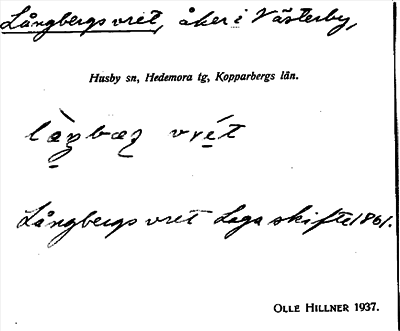 Långbergsvret, åker i Västerby,
Husby sn, Hedemora tg, Kopparbergs län.
vrét
Långbergs vret Laga skifte 1861.
OLLE HILLNER 1937.